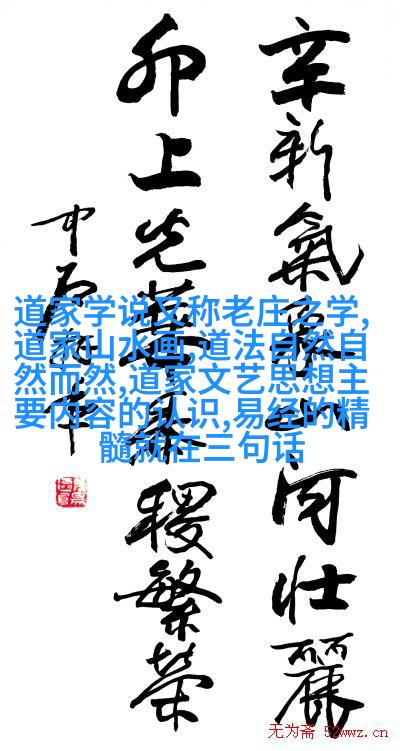 辛新氣河壮麗
卯上光稷繁榮
道家学说又称老庄之学,
道家山水画 道法自然自
然而然,道家文艺思想主
要内容的认识,易经的精
髓就在三句话
无为斋 52wwz.cn